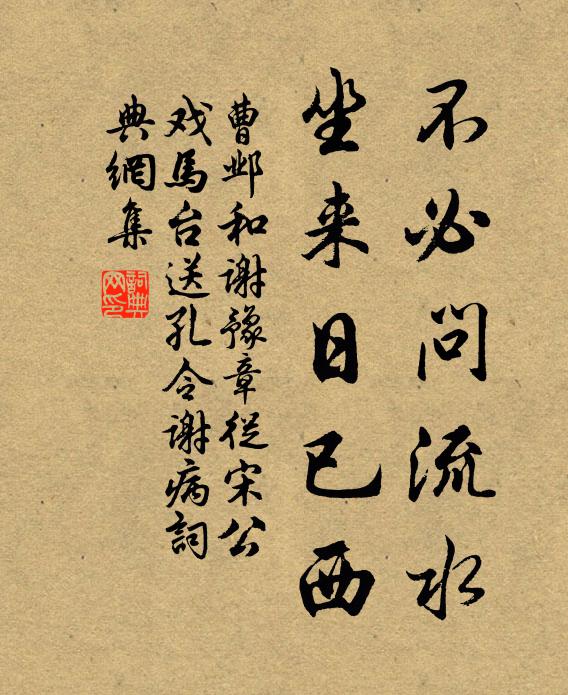 不必問流水
坐来日已西
曹邺和谢豫章從宋公
戏馬台送孔令谢病詞
典網集
詞典
网印